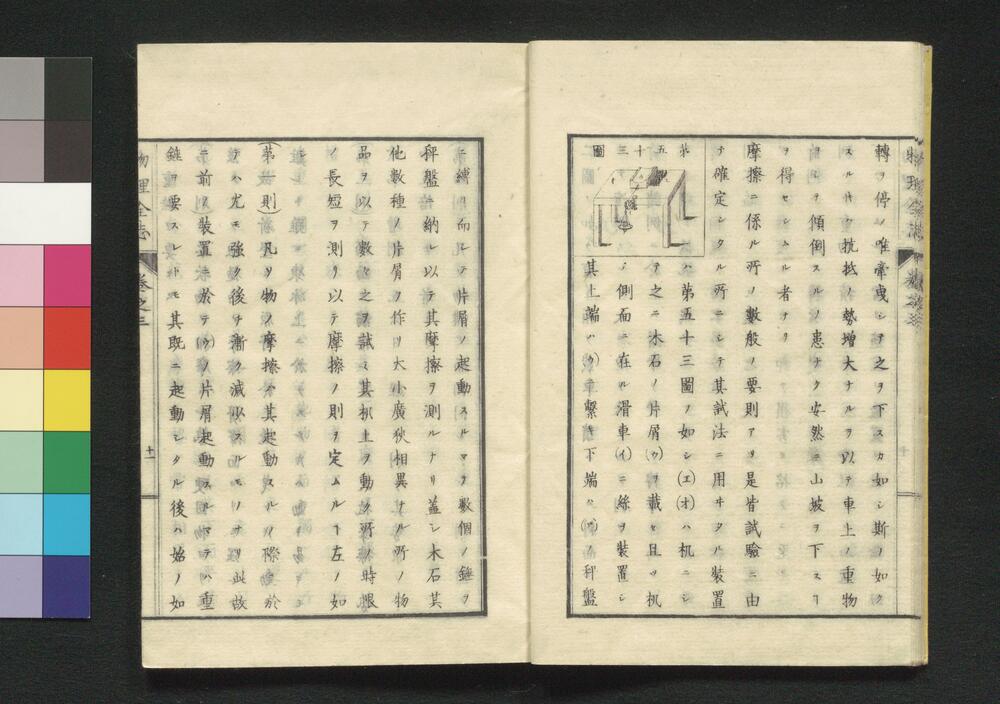 轉ヲ停メ唯牽曳シテ之ヲ下スカ如シ斯ノ如ク
スル片ハ抗抵ノ勢增大ナルヲ以テ車上ノ重物
自ラヲ傾倒スルノ患ナク安然ニ山坡ヲ下スヿ
ヲ得セシムル者ナリ
摩擦ニ係ル所ノ數般ノ要則アリ是皆試驗ニ由
テ確定シタル所ニシテ其試法ニ用ヰタル裝置
ハ第五十三圖ノ如シ(エ)(オ)ハ机ニシ
テ之ニ木石ノ片屑(ウ)ヲ載セ且ツ机
ノ側面ニ在ル滑車(イ)ニ絲ヲ裝置シ
其上端ハ(ウ)ニ繫キ下端ハ
秤盤
第五十三圖
ニ縛リ而シテ片屑ノ起動スルマテ數個ノ錘ヲ
秤盤ニ納レ以テ其摩擦ヲ測ルナリ蓋シ木石其
他數種ノ片屑ヲ作リ大小廣狹相異ナル所ノ物
品ヲ以テ數々之ヲ試ミ其机上ヲ動ク所ノ時限
ノ長短ヲ測リ以テ摩擦ノ則ヲ定ムルヿ左ノ如
(第一則)凡ソ物ノ摩擦ハ其起動スルノ際ニ於
テハ尤モ強ク後チ漸ク減少スルモノナリ此故
ニ前ノ裝置ニ於テ(ウ)ノ片屑起動スルマテハ重
錘ヲ要スレトモ其既ニ起動シタル後ハ始ノ如
物理全志
卷之三
十一